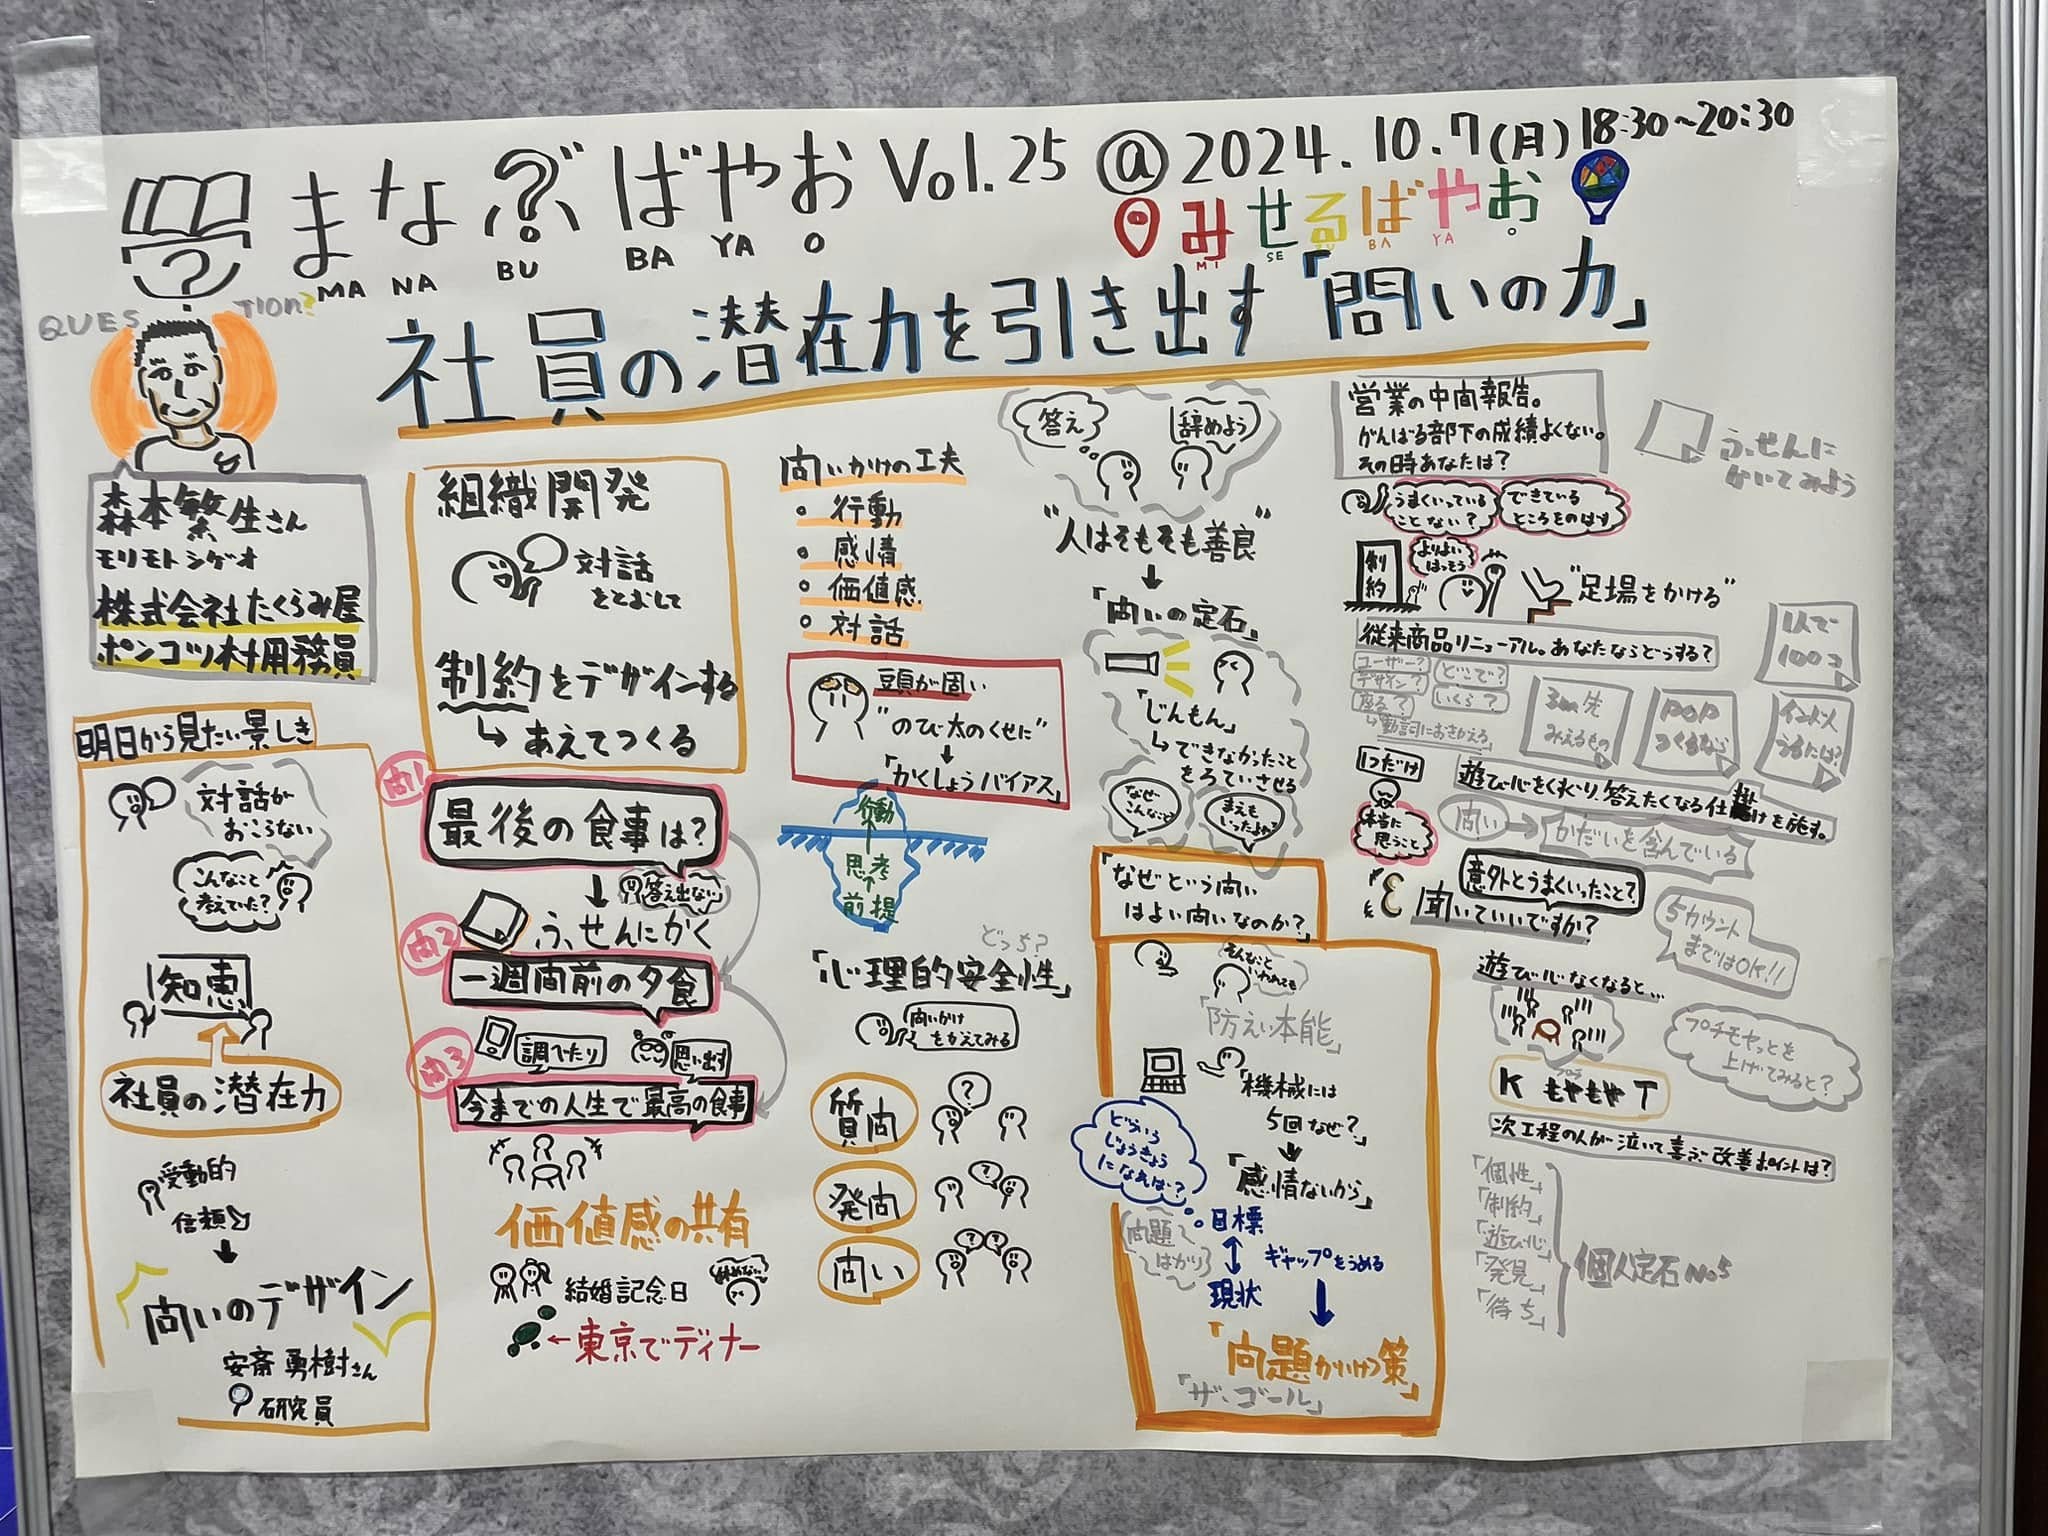 まなぶばやお Vol.25 @ 2024.10.7(月) 18:30~20:30
MA NA BU BA YA O
みせるばやお
MI SE BA YA
QUES TION?
?
社員の潜在力を引き出す「問いの力」
森本繁生さん
モリモトシゲオ
株式会社たくらみ屋
ポンコツ村用務員
明日から見たい景しき
対話が
おこらない
こんなこと
考えていた?
知恵
社員の潜在力
受動的
信頼
問いのデザイン
安斎勇樹さん
研究員
組織開発
対話
をとおして
制約をデザインする
あえてつくる
問1
最後の食事は?
答え出ない
ふせんにかく
問2
一週間前の夕食
調べたり
思い出す
問3
今までの人生で最高の食事
価値感の共有
結婚記念日
東京でディナー
問いかけの工夫
・行動
・感情
・価値感
・対話
頭が固い
"のび太のくせに"
「かくしょうバイアス」
行動
思考
前提
どっち?
「心理的安全性」
問いかけ
をかえてみる
質問
?
発問
?
問い
? ?
答え
辞めよう
"人はそもそも善良"
「問いの定石」
「じんもん」
できなかったこと
をろていさせる
なぜ
こんなこと
まえも
いったよね?
「なぜという問い
はよい問いなのか?」
そんなこと
いわれても
「防えい本能」
「機械には
5回なぜ?」
「感情ないから」
どういう
じょうきょう
になれば?
目標
ギャップをうめる
現状
問題
ばかり
「問題かいけつ策」
「ザ・ゴール」
営業の中間報告。
がんばる部下の成績よくない。
その時あなたは?
ふせんに
かいてみよう
うまくいっている
ことない?
できている
ところをのばす
制約
よりよい
はっそう
"足場をかける"
従来商品リニューアル。あなたならどうする?
ユーザー?
どこで?
デザイン?
いくら?
座る?
動詞におきかえる」
1人で
100コ
3m先
みえるもの
POP
つくるなら
インド人
うるには?
1つだけ
本当に
思うこと
遊び心をくすぐり、答えたくなる仕掛けを施す。
問い
かだいを含んでいる
意外とうまくいったこと?
聞いていいですか?
5カウント
まではOK!!
遊び心なくなると...
プチモヤっとを
上げてみると?
K もやもや T
プチ
次工程の人が泣いて喜ぶ改善ポイントは?
「個性」
「制約」
「遊び心」
「発見」
「待ち」
個人定石No5